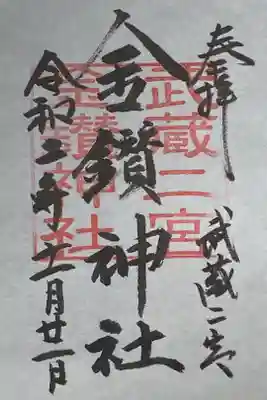 奉拝
武蔵二宮
金鑚神社
令和二年十一月廿一日
武蔵二宮
金鑚神社